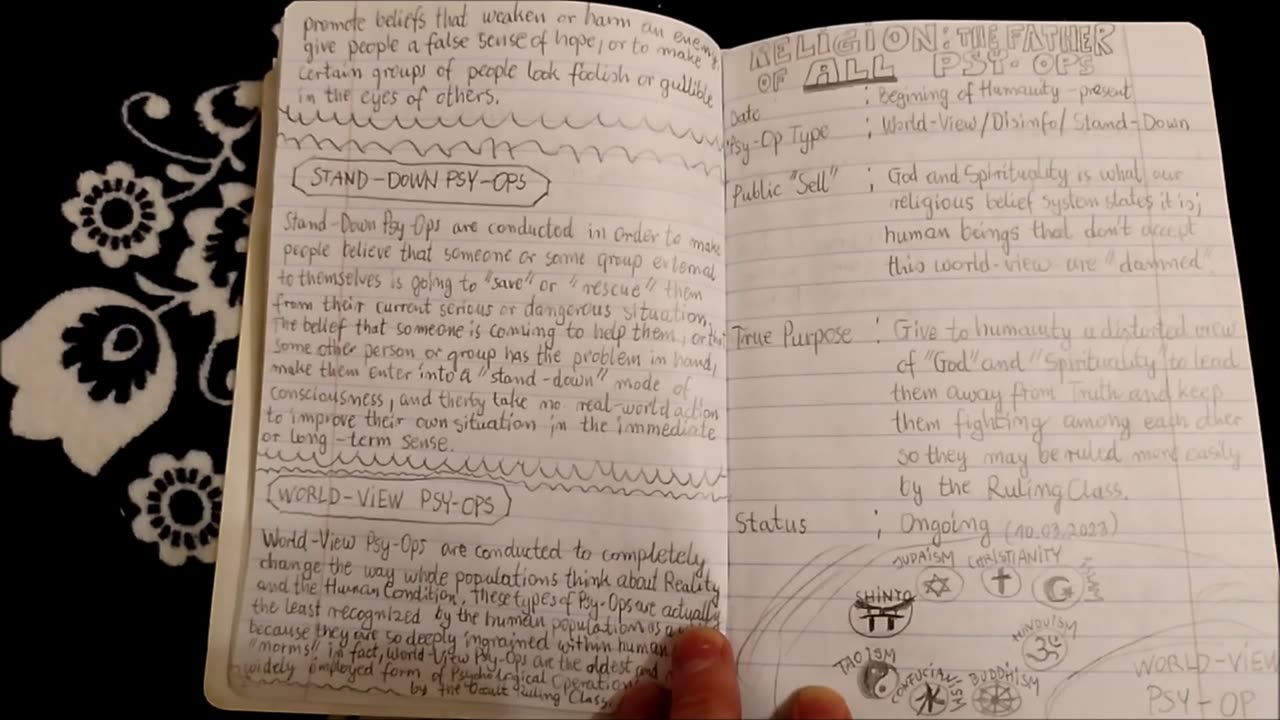 promote beliefs that weaken or harm an enemy
give people a false sense of hope, or to make
certain groups of people look foolish or gullible
in the eyes of others.
STAND-DOWN PSY-OPS
Stand-Down Psy-Ops are conducted in order to make
people believe that someone or some group external
to themselves is going to "save" or "rescue" them
from their current serious or dangerous situation.
The belief that someone is coming to help them, or that
some other person or group has the problem in hand,
make them enter into a "stand-down" mode of
consciousness, and therby take no real-world action
to improve their own situation in the immediate
or long-term sense.
WORLD-VIEW PSY-OPS
World-View Psy-Ops are conducted to completely
change the way whole populations think about Reality
and the Human Condition, these types of Psy-Ops are actually
the least recognized by the human population as
because they are so deeply ingrained within human
"norms" in fact, World-View Psy-Ops are the oldest and
widely employed form of Psychological Operation
by the Occult Ruling Class.
RELIGION: THE FATHER
OF ALL PSY-OPS
Date : Begining of Humanity - present
Psy-Op Type : World-View/Disinfo/Stand-Down
Public "Sell" : God and Spirituality is what our
religious belief system states it is;
human beings that don't accept
this world-view are "damned".
True Purpose : Give to humanity a distorted view
of "God" and "Spirituality" to lead
them away from Truth and keep
them fighting among each other
so they may be ruled more easily
by the Ruling Class.
Status : Ongoing (10.03.2023)
JUDAISM CHRISTIANITY
ISLAM
SHINTO
HINDUISM
TAOISM
CONFUCIANISM
BUDDHISM
WORLD-VIEW
PSY-OP